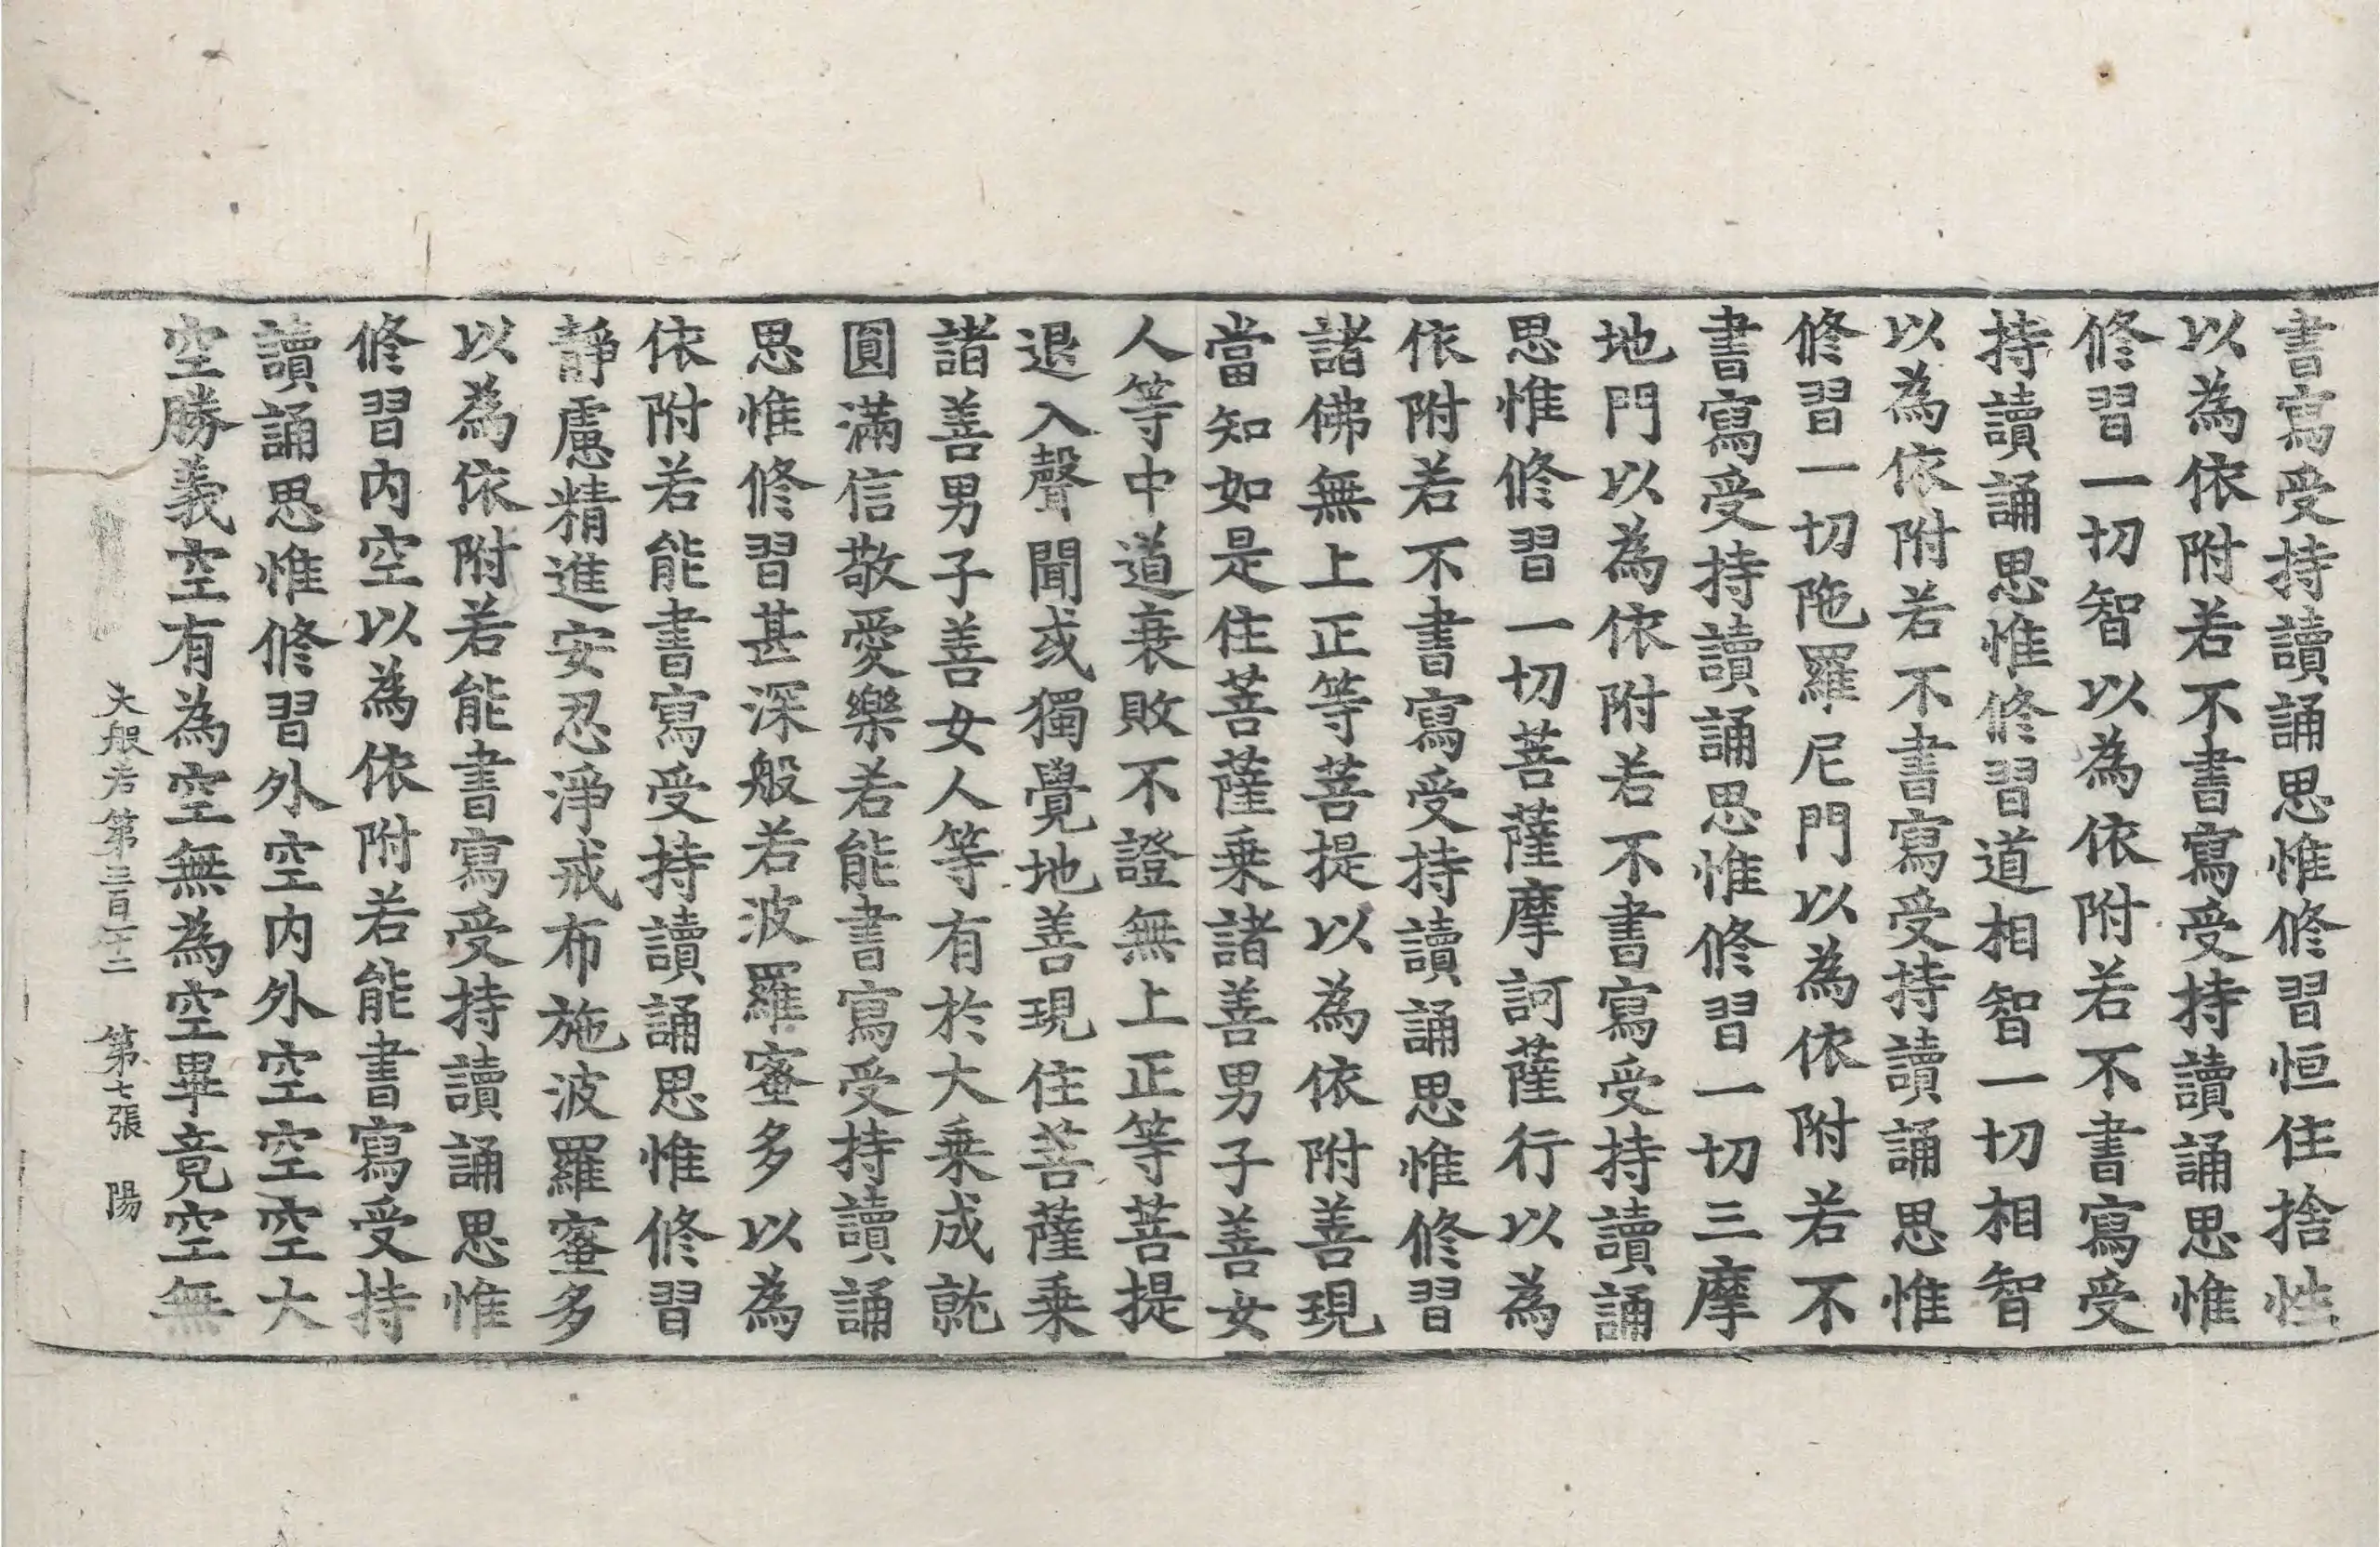 書寫受持讀誦思惟修習恒住捨性
以為依附若不書寫受持讀誦思惟
修習一切智以為依附若不書寫受
持讀誦思惟修習道相智一切相智
以為依附若不書寫受持讀誦思惟
修習一切陁羅尼門以為依附若不
書寫受持讀誦思惟修習一切三摩
地門以為依附若不書寫受持讀誦
思惟修習一切菩薩摩訶薩行以為
依附若不書寫受持讀誦思惟修習
諸佛無上正等菩提以為依附善現
當知如是住菩薩乗諸善男子善女
人等中道衰敗不證無上正等菩提
退入聲聞或獨覺地善現住菩薩乗
諸善男子善女人等有於大乗成就
圓滿信敬愛樂若能書寫受持讀誦
思惟修習甚深般若波羅蜜多以為
依附若能書寫受持讀誦思惟修習
靜慮精進安忍淨戒布施波羅蜜多
以為依附若能書寫受持讀誦思惟
修習内空以為依附若能書寫受持
讀誦思惟修習外空内外空空空大
空勝義空有為空無為空畢竟空無
大般若第三百十二 第七張 陽